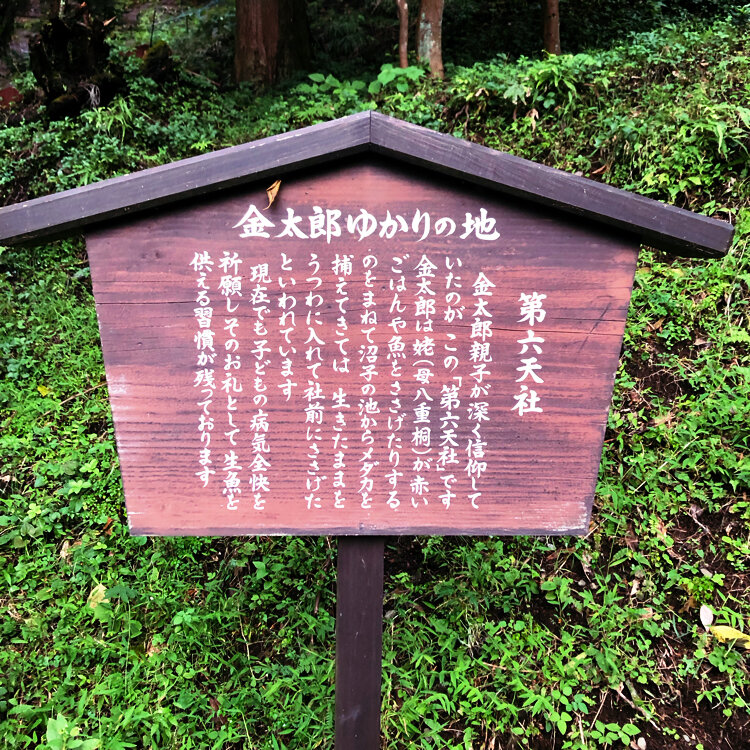 金太郎ゆかりの地
第六天社
金太郎親子が深く信仰して
いたのが この「第六天社」です
金太郎は姥(母八重桐)が赤い
ごはんや魚をささげたりする
のをまねて沼子の池からメダカを
捕えてきては 生きたままを
うつわに入れて社前にささげた
といわれています
現在でも子どもの病気全快を
祈願し そのお礼として 生魚を
供える習慣が残っております